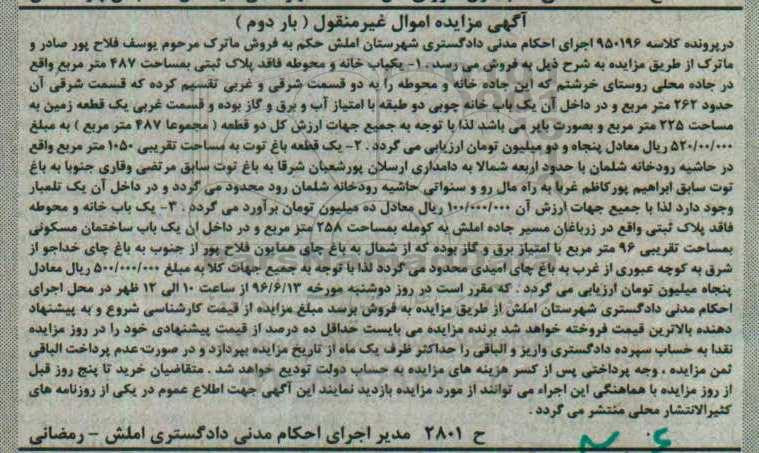 آگهی مزایده اموال غیرمنقول ( بار دوم )
درپرونده کلاسه ۹۵۰۱۹۶ اجرای احکام مدنی دادگستری شهرستان املش حکم به فروش ماترک مرحوم یوسف فلاح پور صادر و
ماترک از طریق مزایده به شرح ذیل به فروش می رسد . ۱- یکباب خانه و محوطه فاقد پلاک ثبتی بمساحت ۴۸۷ متر مربع واقع
در جاده محلی روستای خرشتم که این جاده خانه و محوطه را به دو قسمت شرقی و غربی تقسیم کرده که قسمت شرقی آن
حدود ۲۶۲ متر مربع و در داخل آن یک باب خانه چوبی دو طبقه با امتیاز آب و برق و گاز بوده و قسمت غربی یک قطعه زمین به
مساحت ۲۲۵ متر مربع و بصورت بایر می باشد لذا با توجه به جمیع جهات ارزش کل دو قطعه ( مجموعا ۴۸۷ متر مربع ) به مبلغ
۵۲۰/۰۰۰/۰۰۰ ریال معادل پنجاه و دو میلیون تومان ارزیابی می گردد . ۲- یک قطعه باغ توت به مساحت تقریبی ۱۰۵۰ متر مربع واقع
در حاشیه رودخانه شلمان با حدود اربعه شمالا به دامداری ارسلان پورشعبان شرقا به باغ توت سابق مرتضی وقاری جنوبا به باغ
توت سابق ابراهیم پورکاظم غربا به راه مال رو و سنواتی حاشیه رودخانه شلمان رود محدود می گردد و در داخل آن یک تلمبار
وجود دارد لذا با جمیع جهات ارزش آن ۱۰۰/۰۰۰/۰۰۰ ریال معادل ده میلیون تومان برآورد می گردد . ۳- یک باب خانه و محوطه
فاقد پلاک ثبتی واقع در زرباغان مسیر جاده املش به کومله بمساحت ۲۵۸ متر مربع و در داخل آن یک باب ساختمان مسکونی
بمساحت تقریبی ۹۶ متر مربع با امتیاز برق و گاز بوده که از شمال به باغ چای همایون فلاح پور از جنوب به باغ چای خداجو از
شرق به کوچه عبوری از غرب به باغ چای امیدی محدود می گردد لذا با توجه به جمیع جهات کلا به مبلغ ۵۰۰/۰۰۰/۰۰۰ ریال معادل
پنجاه میلیون تومان ارزیابی می گردد . که مقرر است در روز دوشنبه مورخه ۹۶/۶/۱۳ از ساعت ۱۰ الی ۱۲ ظهر در محل اجرای
احکام مدنی دادگستری شهرستان املش از طریق مزایده به فروش برسد مبلغ مزایده از قیمت کارشناسی شروع و به پیشنهاد
دهنده بالاترین قیمت فروخته خواهد شد برنده مزایده می بایست حداقل ده درصد از قیمت پیشنهادی خود را در روز مزایده
نقدا به حساب سپرده دادگستری واریز و الباقی را حداکثر ظرف یک ماه از تاریخ مزایده بپردازد و در صورت عدم پرداخت الباقی
ثمن مزایده ، وجه پرداختی پس از کسر هزینه های مزایده به حساب دولت تودیع خواهد شد . متقاضیان خرید تا پنج روز قبل
از روز مزایده با هماهنگی این اجراء می توانند از مورد مزایده بازدید نمایند این آگهی جهت اطلاع عموم در یکی از روزنامه های
کثیرالانتشار محلی منتشر می گردد .
ح ۲۸۰۱ مدیر اجرای احکام مدنی دادگستری املش – رمضانی